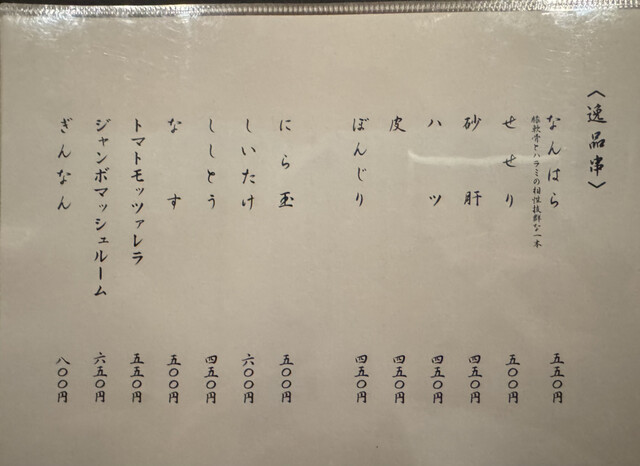 〈逸品串〉
なんはら 五五〇円
膝軟骨とハラミの相性抜群な一本
せせり 五〇〇円
砂肝 四五〇円
ハツ 四五〇円
皮 四五〇円
ぼんじり 四五〇円
にら玉 五〇〇円
しいたけ 六〇〇円
ししとう 四五〇円
なす 五〇〇円
トマトモッツァレラ 五五〇円
ジャンボマッシュルーム 六五〇円
ぎんなん 八〇〇円